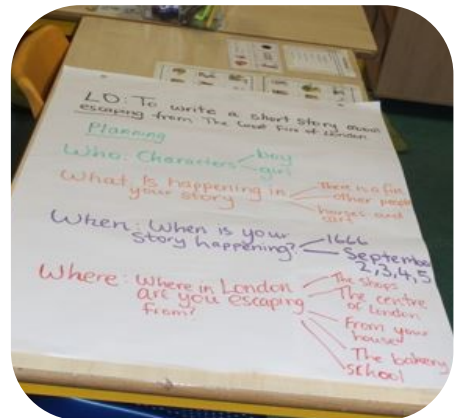 LO: To write a short story about
escaping from The Great Fire of London
Planning
Who: Characters boy
girl
What is happening in
your story
There is a fire
other people
horses and
cart
When: When is your
story happening?
1666
September
2,3,4,5
Where: Where in London
are you escaping
from?
The shops
The centre
of London
From your
house
The bakery
school